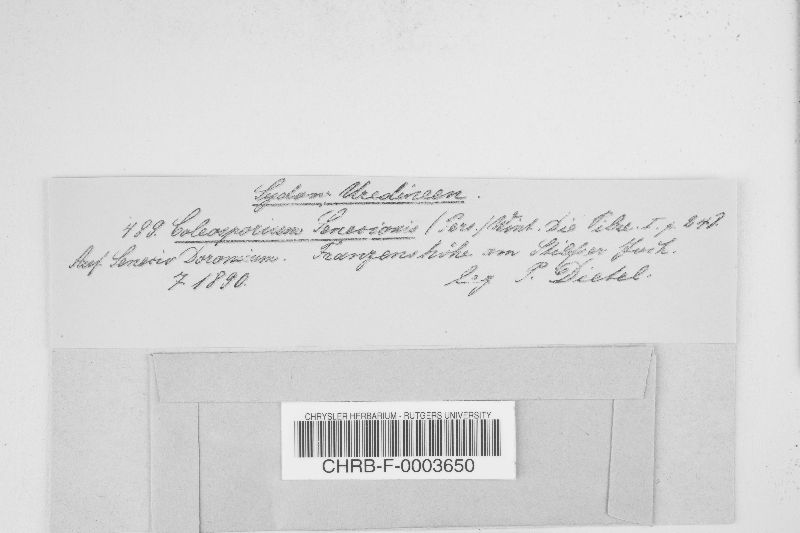 Sydow. Uredineen.
489. Coleosporium Senecionis (Pers.) Wint. Die Pilze. I. p 248.
Auf Senecio Doronicum. Franzenshöhe am Stilfser Joch.
7 1890. Leg P. Dietel.
CHRYSLER HERBARIUM - RUTGERS UNIVERSITY
CHRB-F-0003650